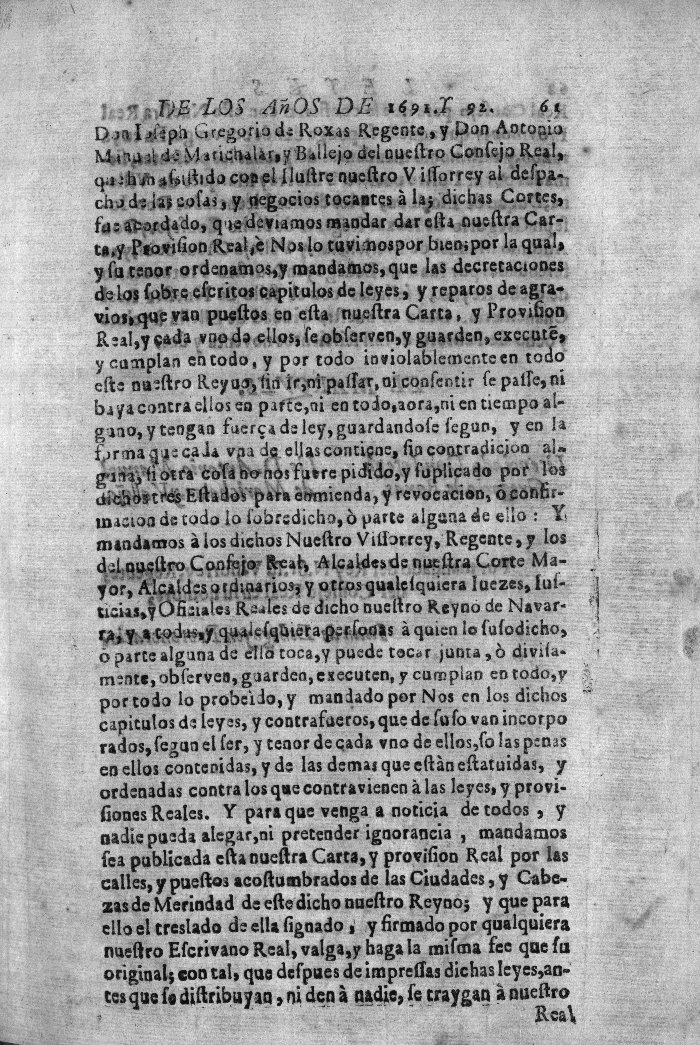 DE LOS AñOS DE 1691. Y 92. 61
Don Ioseph Gregorio de Roxas Regente, y Don Antonio
Manual de Marichalar, y Ballejo del nuestro Consejo Real,
que han assistido con el Ilustre nuestro Vissorrey al despa-
cho de las cosas, y negocios tocantes à las dichas Cortes,
fue acordado, que deviamos mandar dar esta nuestra Car-
ta, y Provision Real, è Nos lo tuvimos por bien; por la qual,
y su tenor ordenamos, y mandamos, que las decretaciones
de los sobre escritos capitulos de leyes, y reparos de agra-
vios, que van puestos en esta nuestra Carta, y Provision
Real, y cada vno de ellos, se observen, y guarden, executẽ,
y cumplan en todo, y por todo inviolablemente en todo
este nuestro Reyno, sin ir, ni passar, ni consentir se passe, ni
baya contra ellos en parte, ni en todo, aora, ni en tiempo al-
guno, y tengan fuerça de ley, guardandose segun, y en la
forma que cada vna de ellas contiene, sin contradicion al-
guna, si otra cosa no nos fuere pidido, y suplicado por los
dichos tres Estados para enmienda, y revocacion, ò confir-
macion de todo lo sobredicho, ò parte alguna de ello: Y
mandamos à los dichos Nuestro Vissorrey, Regente, y los
del nuestro Consejo Real, Alcaldes de nuestra Corte Ma-
yor, Alcaldes ordinarios, y otros qualesquiera Iuezes, Ius-
ticias, y Oficiales Reales de dicho nuestro Reyno de Navar-
ra, y a todas, y qualesquiera personas à quien lo susodicho,
ò parte alguna de ello toca, y puede tocar junta, ò divisa-
mente, observen, guarden, executen, y cumplan en todo, y
por todo lo probeido, y mandado por Nos en los dichos
capitulos de leyes, y contrafueros, que de suso van incorpo
rados, segun el ser, y tenor de cada vno de ellos, so las penas
en ellos contenidas, y de las demas que estàn estatuidas, y
ordenadas contra los que contravienen à las leyes, y provi-
siones Reales. Y para que venga a noticia de todos, y
nadie pueda alegar, ni pretender ignorancia, mandamos
sea publicada esta nuestra Carta, y provision Real por las
calles, y puestos acostumbrados de las Ciudades, y Cabe-
zas de Merindad de este dicho nuestro Reyno; y que para
ello el treslado de ella signado, y firmado por qualquiera
nuestro Escrivano Real, valga, y haga la misma fee que su
original; con tal, que despues de impressas dichas leyes, an-
tes que se distribuyan, ni den à nadie, se traygan à nuestro
Real